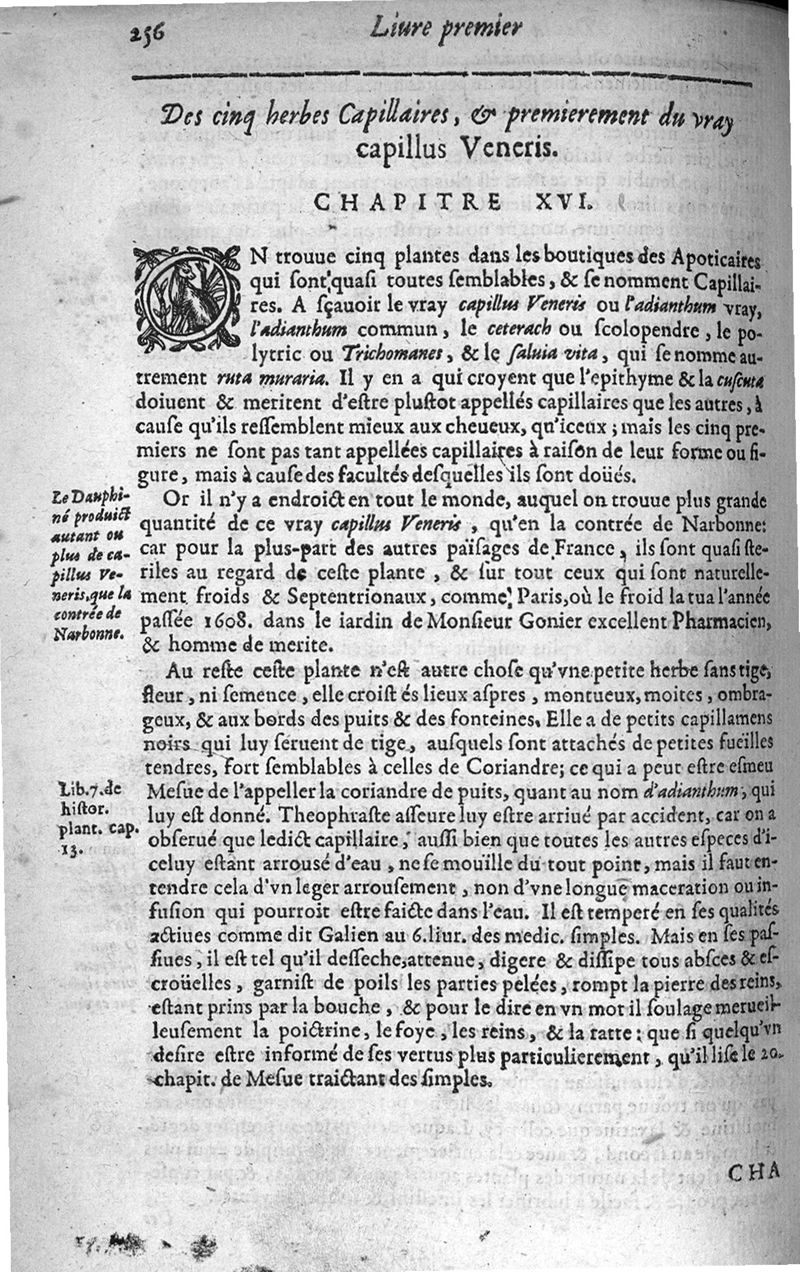 256 Liure premier
Des cinq herbes Capillaires, & premierement du vray
capillus Veneris.
CHAPITRE XVI.
ON trouue cinq plantes dans les boutiques des Apoticaires
qui sont quasi toutes semblables, & se nomment Capillai-
res. A sçauoir le vray capillus Veneris ou l'adianthum vray,
l'adianthum commun, le ceterach ou scolopendre, le po-
lytric ou Trichomanes, & le saluia vita, qui se nomme au-
trement ruta muraria. Il y en a qui croyent que l'epithyme & la cuscuta
doiuent & meritent d'estre plustot appellés capillaires que les autres, à
cause qu'ils ressemblent mieux aux cheueux, qu'iceux; mais les cinq pre-
miers ne sont pas tant appellées capillaires à raison de leur forme ou fi-
gure, mais à cause des facultés desquelles ils sont doüés.
Le Dauphi-
né produict
autant ou
plus de ca-
pillus Ve-
neris, que la
contrée de
Narbonne.
Or il n'y a endroict en tout le monde, auquel on trouue plus grande
quantité de ce vray capillus Veneris, qu'en la contrée de Narbonne:
car pour la plus-part des autres païsages de France, ils sont quasi ste-
riles au regard de ceste plante, & sur tout ceux qui sont naturelle-
ment froids & Septentrionaux, comme Paris, où le froid la tua l'année
passée 1608. dans le iardin de Monsieur Gonier excellent Pharmacien,
& homme de merite.
Au reste ceste plante n'est autre chose qu'vne petite herbe sans tige,
fleur, ni semence, elle croist és lieux aspres, montueux, moites, ombra-
geux, & aux bords des puits & des fonteines. Elle a de petits capillamens
noirs qui luy seruent de tige, ausquels sont attachés de petites fueilles
tendres, fort semblables à celles de Coriandre; ce qui a peut estre esmeu
Lib. 7. de
histor.
plant. cap.
13.
Mesue de l'appeller la coriandre de puits, quant au nom d'adianthum, qui
luy est donné. Theophraste asseure luy estre arriué par accident, car on a
obserué que ledict capillaire, aussi bien que toutes les autres especes d'i-
celuy estant arrousé d'eau, ne se mouïlle du tout point, mais il faut en-
tendre cela d'vn leger arrousement, non d'vne longue maceration ou in-
fusion qui pourroit estre faicte dans l'eau. Il est temperé en ses qualités
actiues comme dit Galien au 6. liur. des medic. simples. Mais en ses pas-
siues, il est tel qu'il desseche, attenue, digere & dissipe tous absces & es-
croüelles, garnist de poils les parties pelées, rompt la pierre des reins,
estant prins par la bouche, & pour le dire en vn mot il soulage merueil-
leusement la poictrine, le foye, les reins, & la ratte: que si quelqu'vn
desire estre informé de ses vertus plus particulierement, qu'il lise le 20.
chapit. de Mesue traictant des simples.
CHA